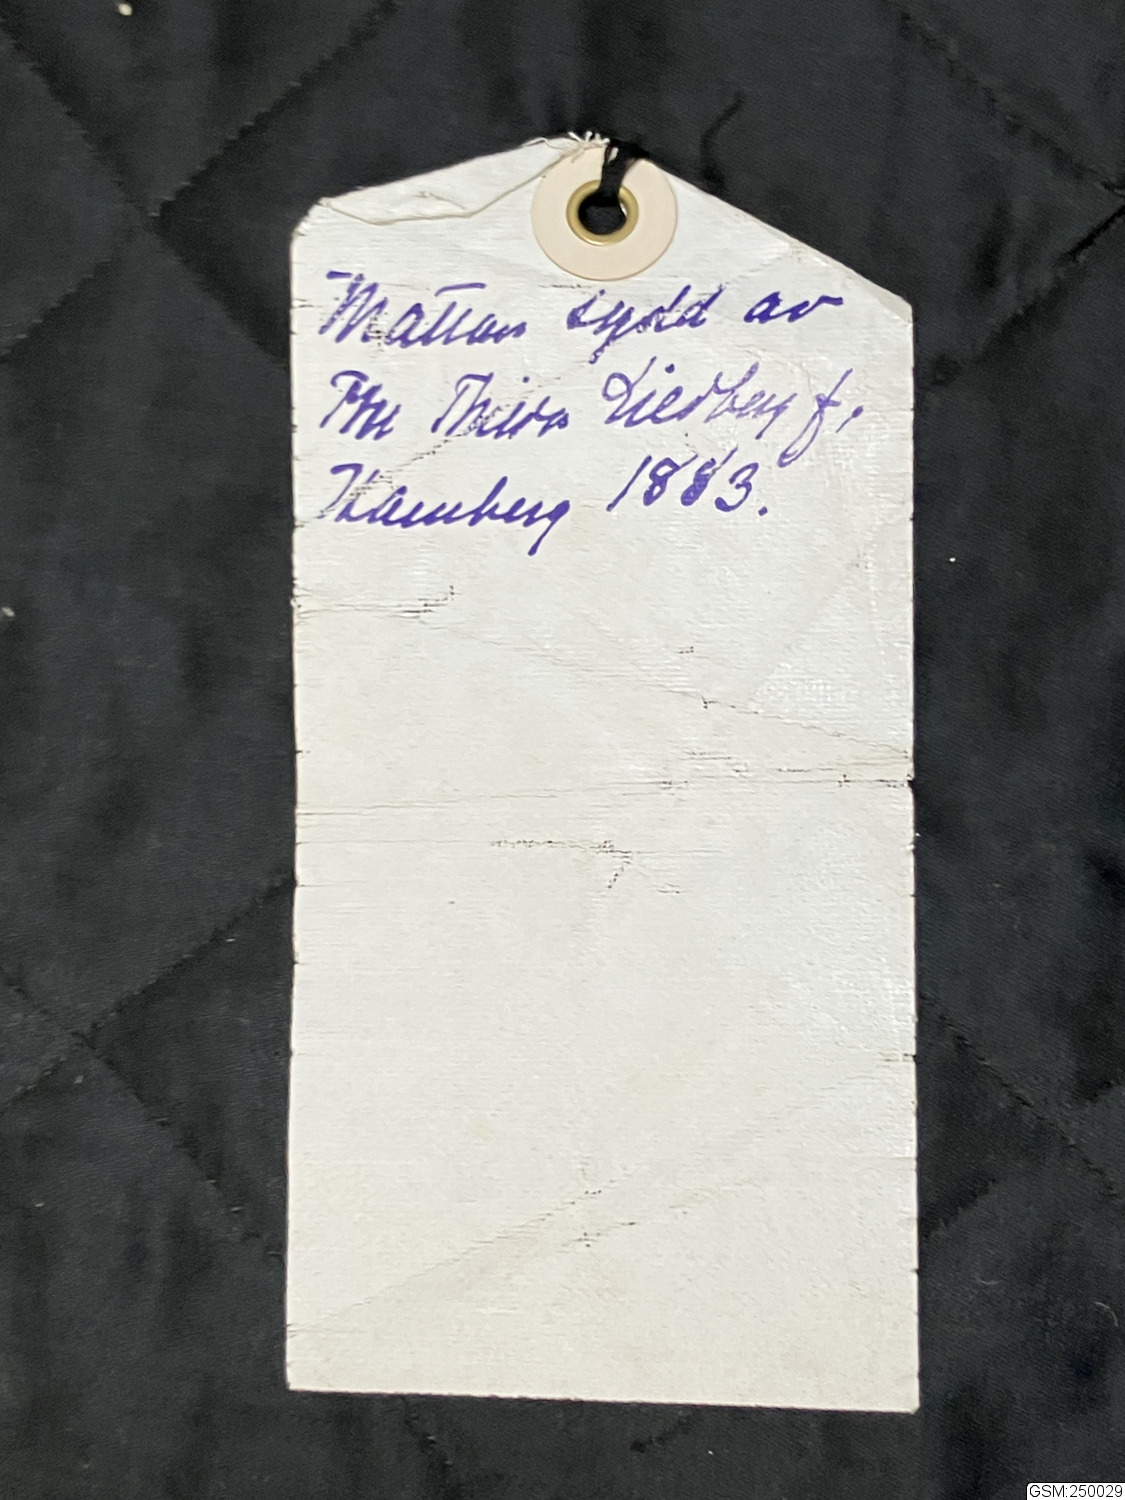 Mattan sydd av
Fru Thira Liedberg f.
Thamberg 1883.
GSM:250029